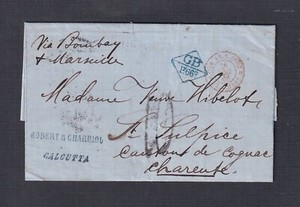 Via Bombay
& Marseille
GB
1F 66c
Madame Veuve Hibelot
St Sulpice
Canton de Cognac
Charente
ROBERT & CHARRIOL
CALCUTTA